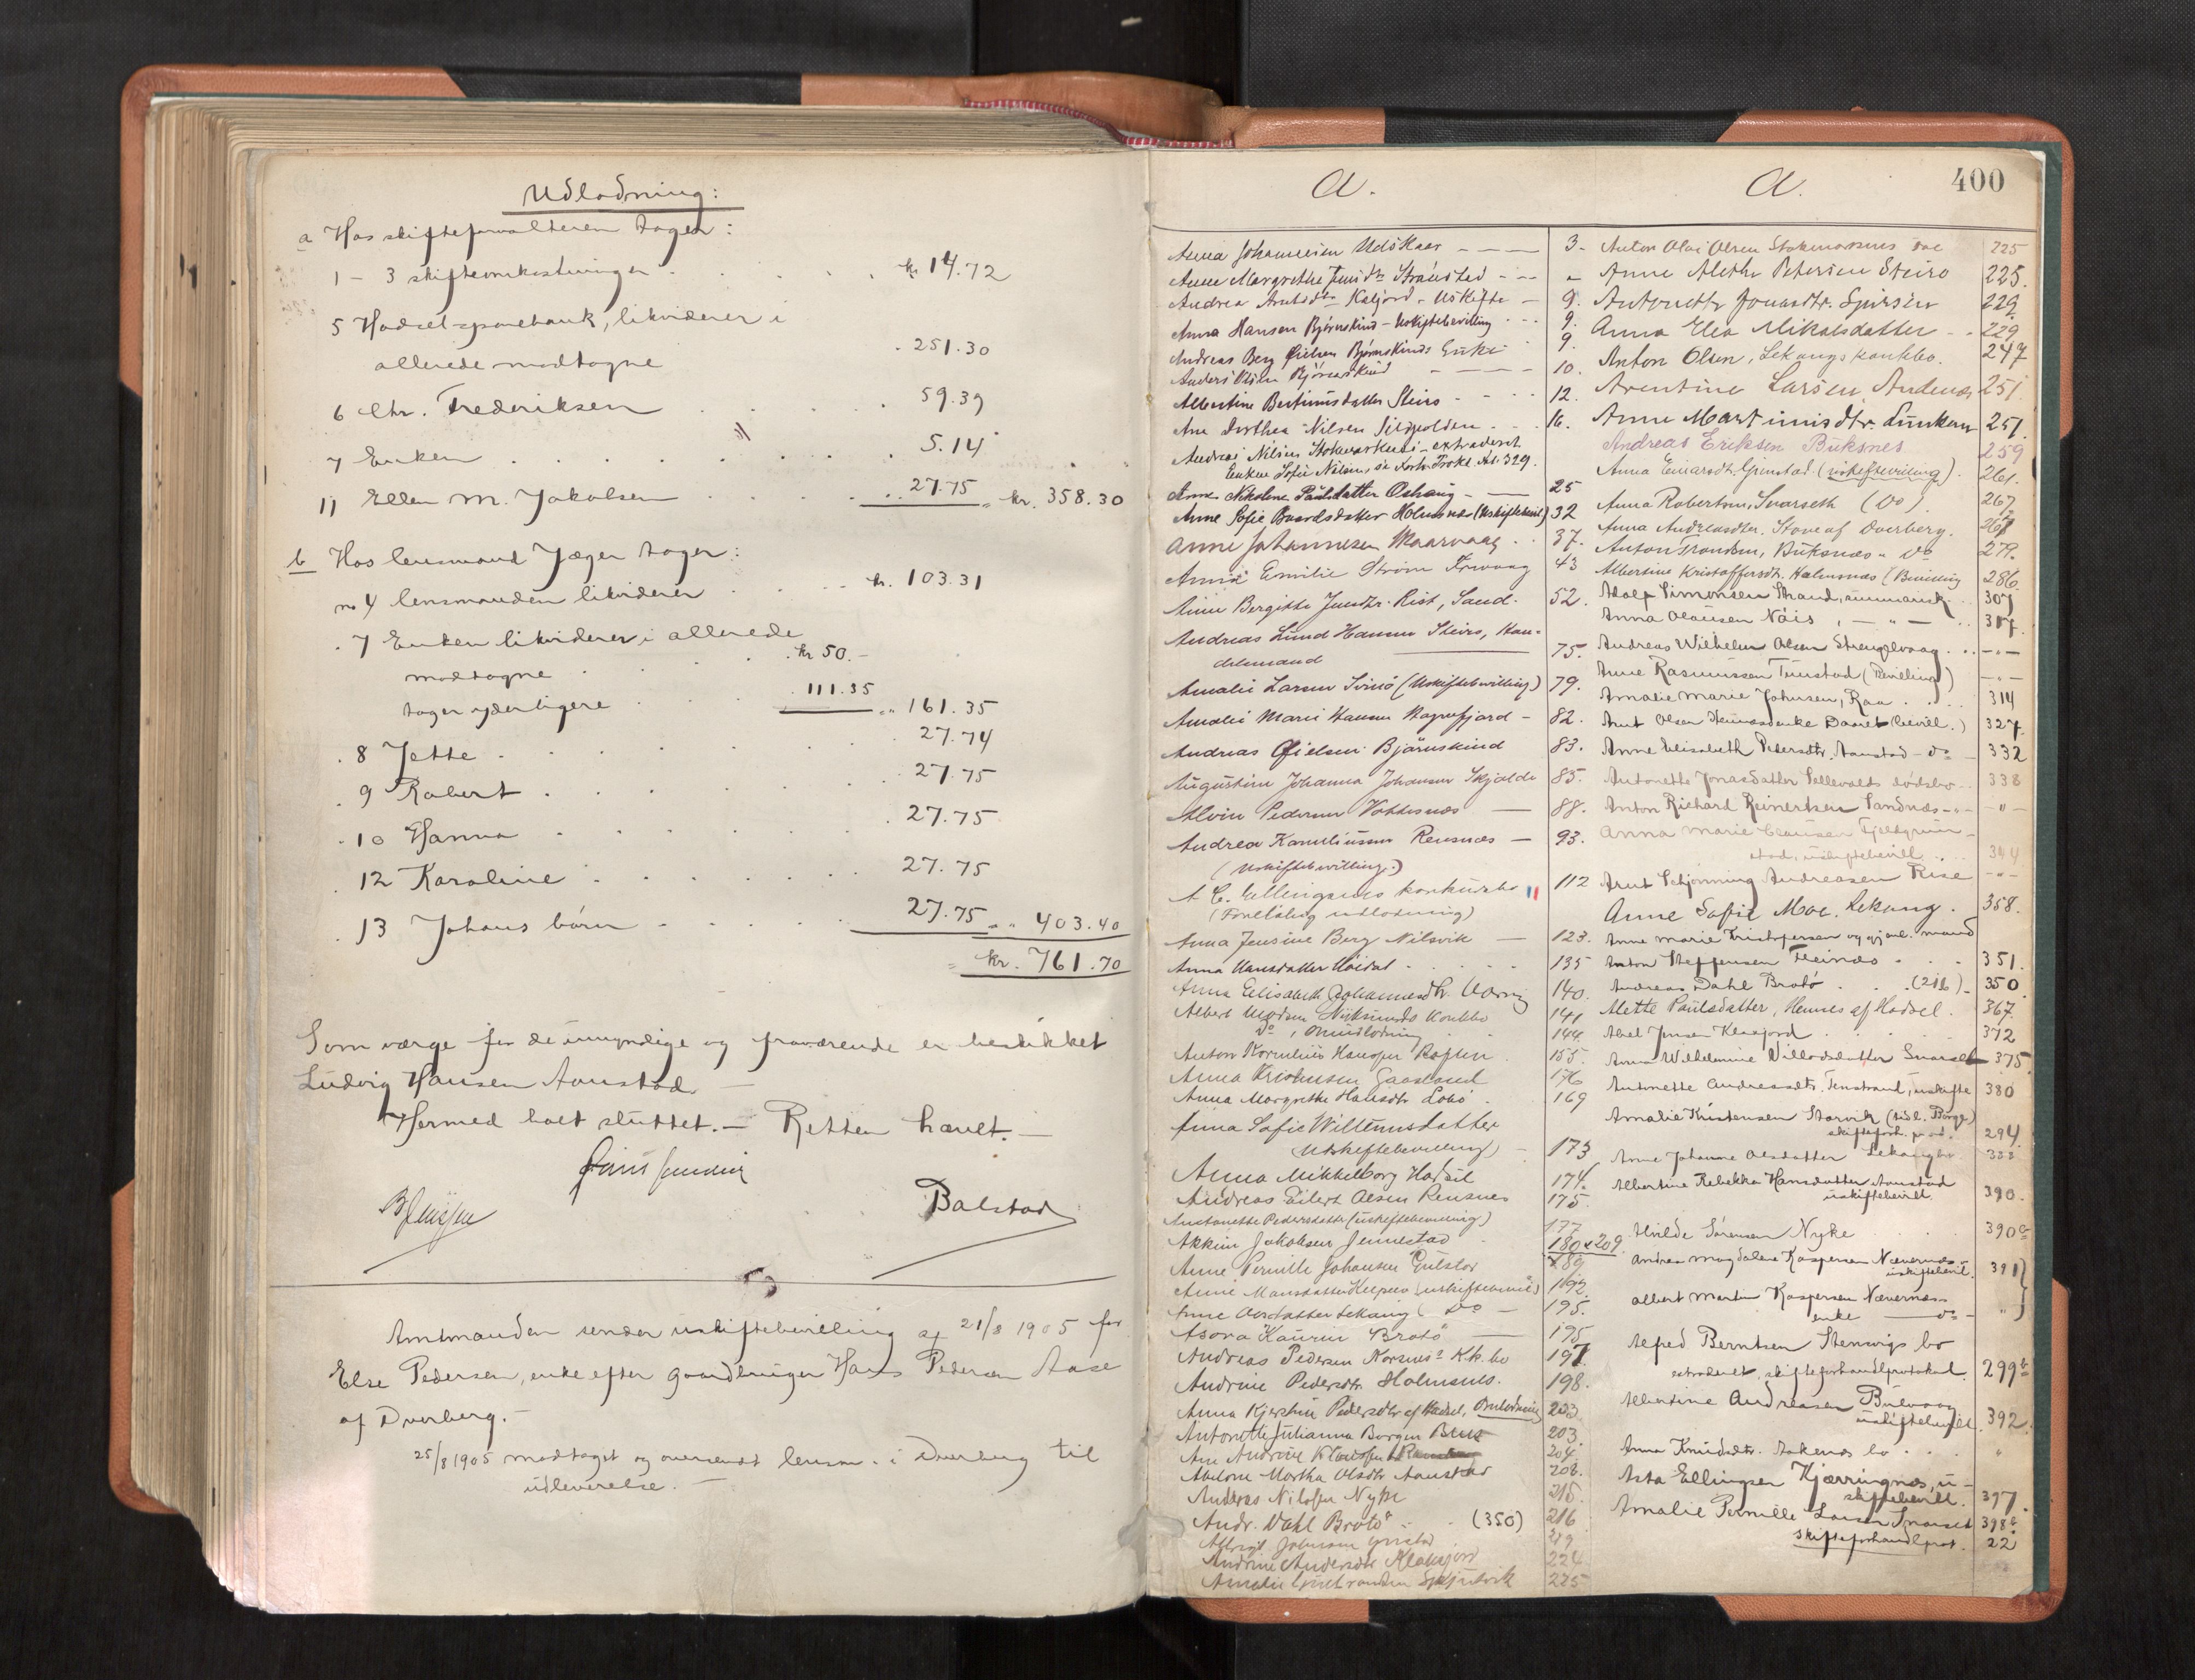 Udlodning:
a Hos skifteforvalteren tages:
1 - 3 skifteomkostninger . . . . . kr. 14.72
5 Hadsel sparebank, likviderer i
allerede modtagne . 251.30
6 Chr. Frederiksen . . . . . 59.39
7 Enken . . . . . . . . 5.14
11 Ellen M. Jakobsen . . . . . 27.75 " kr. 358.30
b Hos lensmand Jæger tages:
no 4 lensmanden likviderer . . . kr. 103.31
. 7 Enken likviderer i allerede
modtagne . . . . kr 50.-
tager yderligere . . . 111.35 " 161.35
. 8 Jette . . . . . . 27.74
. 9 Robert . . . . . . 27.75
. 10 Hanna . . . . . . 27.75
. 12 Karoline . . . . . . 27.75
. 13 Johans børn . . . . . 27.75 " " 403.40
= kr. 761.70
Som værge for de umyndige og fraværende er beskikket
Ludvig Hansen Aanstad.
Hermed bolt sluttet. — Retten hævet. —
B Jenssen
Balstad
Amtmanden sender uskiftebevilling af 21/8 1905 for
Else Pedersen, enke efter gaardbruger Hans Pedersen Aase
af Dverberg. -
25/8 1905 modtaget og oversendt lensm. i Dverberg til
udleverelse. -
A.
A.
400
Anna Johannesen Udskaar - - - 3 -
Anne Margrethe Jensdtr Strandstad - - - "
Andrea Arntsdtr Kaljord - Uskifte - 9.
Anna Hansen Bjørnskind - Uskiftebevilling - - - 9.
Andreas Berg Øielsen Bjørnskinds Enke 9.
Anders Olsen Bjørnskind - - - 10.
Albertine Bertinusdatter Steiro - - - 12.
Ane Dorthea Nilsen Sildpolden . . . 16.
Andreas Nilsen Stokmarknes - extraderet
Enken Sofie Nilsen, se Forh. Prokl. fol. 329.
Anne Nikoline Paulsdatter Oshaug - — 25
Anne Sofie Baardsdatter Holmsnes (Uskiftebevil) 32
Anne Johannesen Skaarvaag . . 37.
Annie Emilie Strøm Frovaag 43
Anne Bergitte Jensdtr. Rist, Sand. 52.
Andreas Lund Hansen Steiro, Han-
delsmand 75.
Amalie Larsen Svinø (Uskiftebevilling) 79.
Amalie Marie Hansen Kagnfjord - 82.
Andreas Øielsen Bjørnskind 83.
Augustine Johanna Johansen Skjolde 85.
Alvin Pedersen Vottesnæs — 88.
Andrea Korneliussen Rensnæs — 93.
(Uskiftebevilling.)
A C. Ellingsens konkursbo 112
(Foreløbig udlodning)
Anna Jensine Berg Nilsvik — 123.
Anna Hansdatter Uleidal . . . . 135
Anna Elisabeth Johannesdtr. 140.
Albert Madsen Konkbo 141
Do, Omudlodning . . 144.
Anton Kornelius Hansen Raften 155.
Anna Kristensen Gaasland 176
Anna Margrethe Hansdtr Lobø . 169
Anna Sofie Willumsdatter
(Uskiftebevilling) - 173
Anna Mikkelborg Hadsel 174.
Andreas Eilert Olsen Rensnes 175.
Antonette Pedersdatter (uskiftebevilling) 177
Akkim Jakobsen Jennestad . 180 x 209
Anne Pernille Johansen Gulstad 189
Anne Mansdatter (uskiftebevil) 192.
Anne Olesdatter Lekang ( Do - 195.
Asora Kaurin Brotø — 195
Andreas Pedersen K.k.bo 197.
Andrine Pedersdtr Holmsnes. 198.
Anna Kjerstine Pedersdtr af Hadsel, Omlodning 203
Antonette Julianna Borgen 203.
Ane Andrine 204.
Abelone Martha Olsdtr Aanstad 208.
Andreas Nilssen Nyke 215.
Andr. Dahl Brotø . . (350) 216
Albrigt Johnsen 219
Andrine Andersdtr Klaksjord 224
Amalie 225
Anton Olai Olsen Stokmarknes 225
Anne Alethe Petersen Steiro 225.
Antonette Jonasdtr. 229
Anna Elea Mikalsdatter - . 229
Anton Olsen, Lekangs konkbo. 247
Arentine Larsen, Andenæs 251
Anne Martinusdtr. Lunkan 251
Andreas Eriksen Buksnes 259
Anna Einarsdtr. Grimstad (uskiftevilling). 261.
Anna Robertsen, Snarseth (Do) 267
Anna Andreasdtr. Stave af Dverberg. 267
Anton Trondsen, Buksnæs " Do 279.
Albertine Kristoffersdtr. Holmsnæs (Bevilling 286.
Adolf Simonsen Strand, 307
Anna Olausen Nöis, - " - . . 307.
Andreas Wilhelm Olsen Strengelvaag . . - " -
Anne Rasmussen Tunstad (Bevilling) - " -
Amalie Marie Johnsen, Raa . . . 314
Arnt Olsen enke Daaret (bevill.) 327.
Anne Elisabeth Pedersdtr. Aanstad - Do - 332
Antonette Jonasdatter Sellevolds dødsbo . . 338
Anton Richard Reinertsen Sandnæs - " - - " -
Anna Marie Clausen
uskiftebevill. 344
Arnt Schjønning Andreasen Risе - " -
Anne Sofie Moe. Lekang . 358.
Anne Marie Kristofersen og gjenl. mand
Anton Steffensen Fleinæs . . . 351.
Andreas Dahl Brotø . . . (216). 350
Mette Paulsdatter, Hennes af Hadsel . 367.
Abel Jensen Klaxfjord . . . 372
Anna Wilhelmine Villadsdatter Snarset 375
Antonette Andreasdtr. Finstrand, uskifte 380
Amalie Kristensen Storvik (tidl. Borge)
skifteforh. prot. 294.
Anne Johanne Olesdatter Lekang bo 388
Albertine Rebekka Hansdatter Aanstad
uskiftebevill. 390.
Alvilde Sørensen Nyke 390a
Andrea Magdalene Kaspersen Nævernæs
uskiftebevill. 391
Albert Martin Kaspersen Nævernæs
enke — Do - "
Alfred Berntsen Stenvigs bo
extraderet, skifteforhandlprotokol. 299b
Albertine Andreasen Buevaag
uskiftebevill. 392.
Anna Knudsdtr. Aaknes bo . . . "
Asta Ellingsen Kjærringnæs, u-
skiftebevill. 397.
Amalie Pernille Larsen Snarset 398b
Skifteforhandlprot. 22